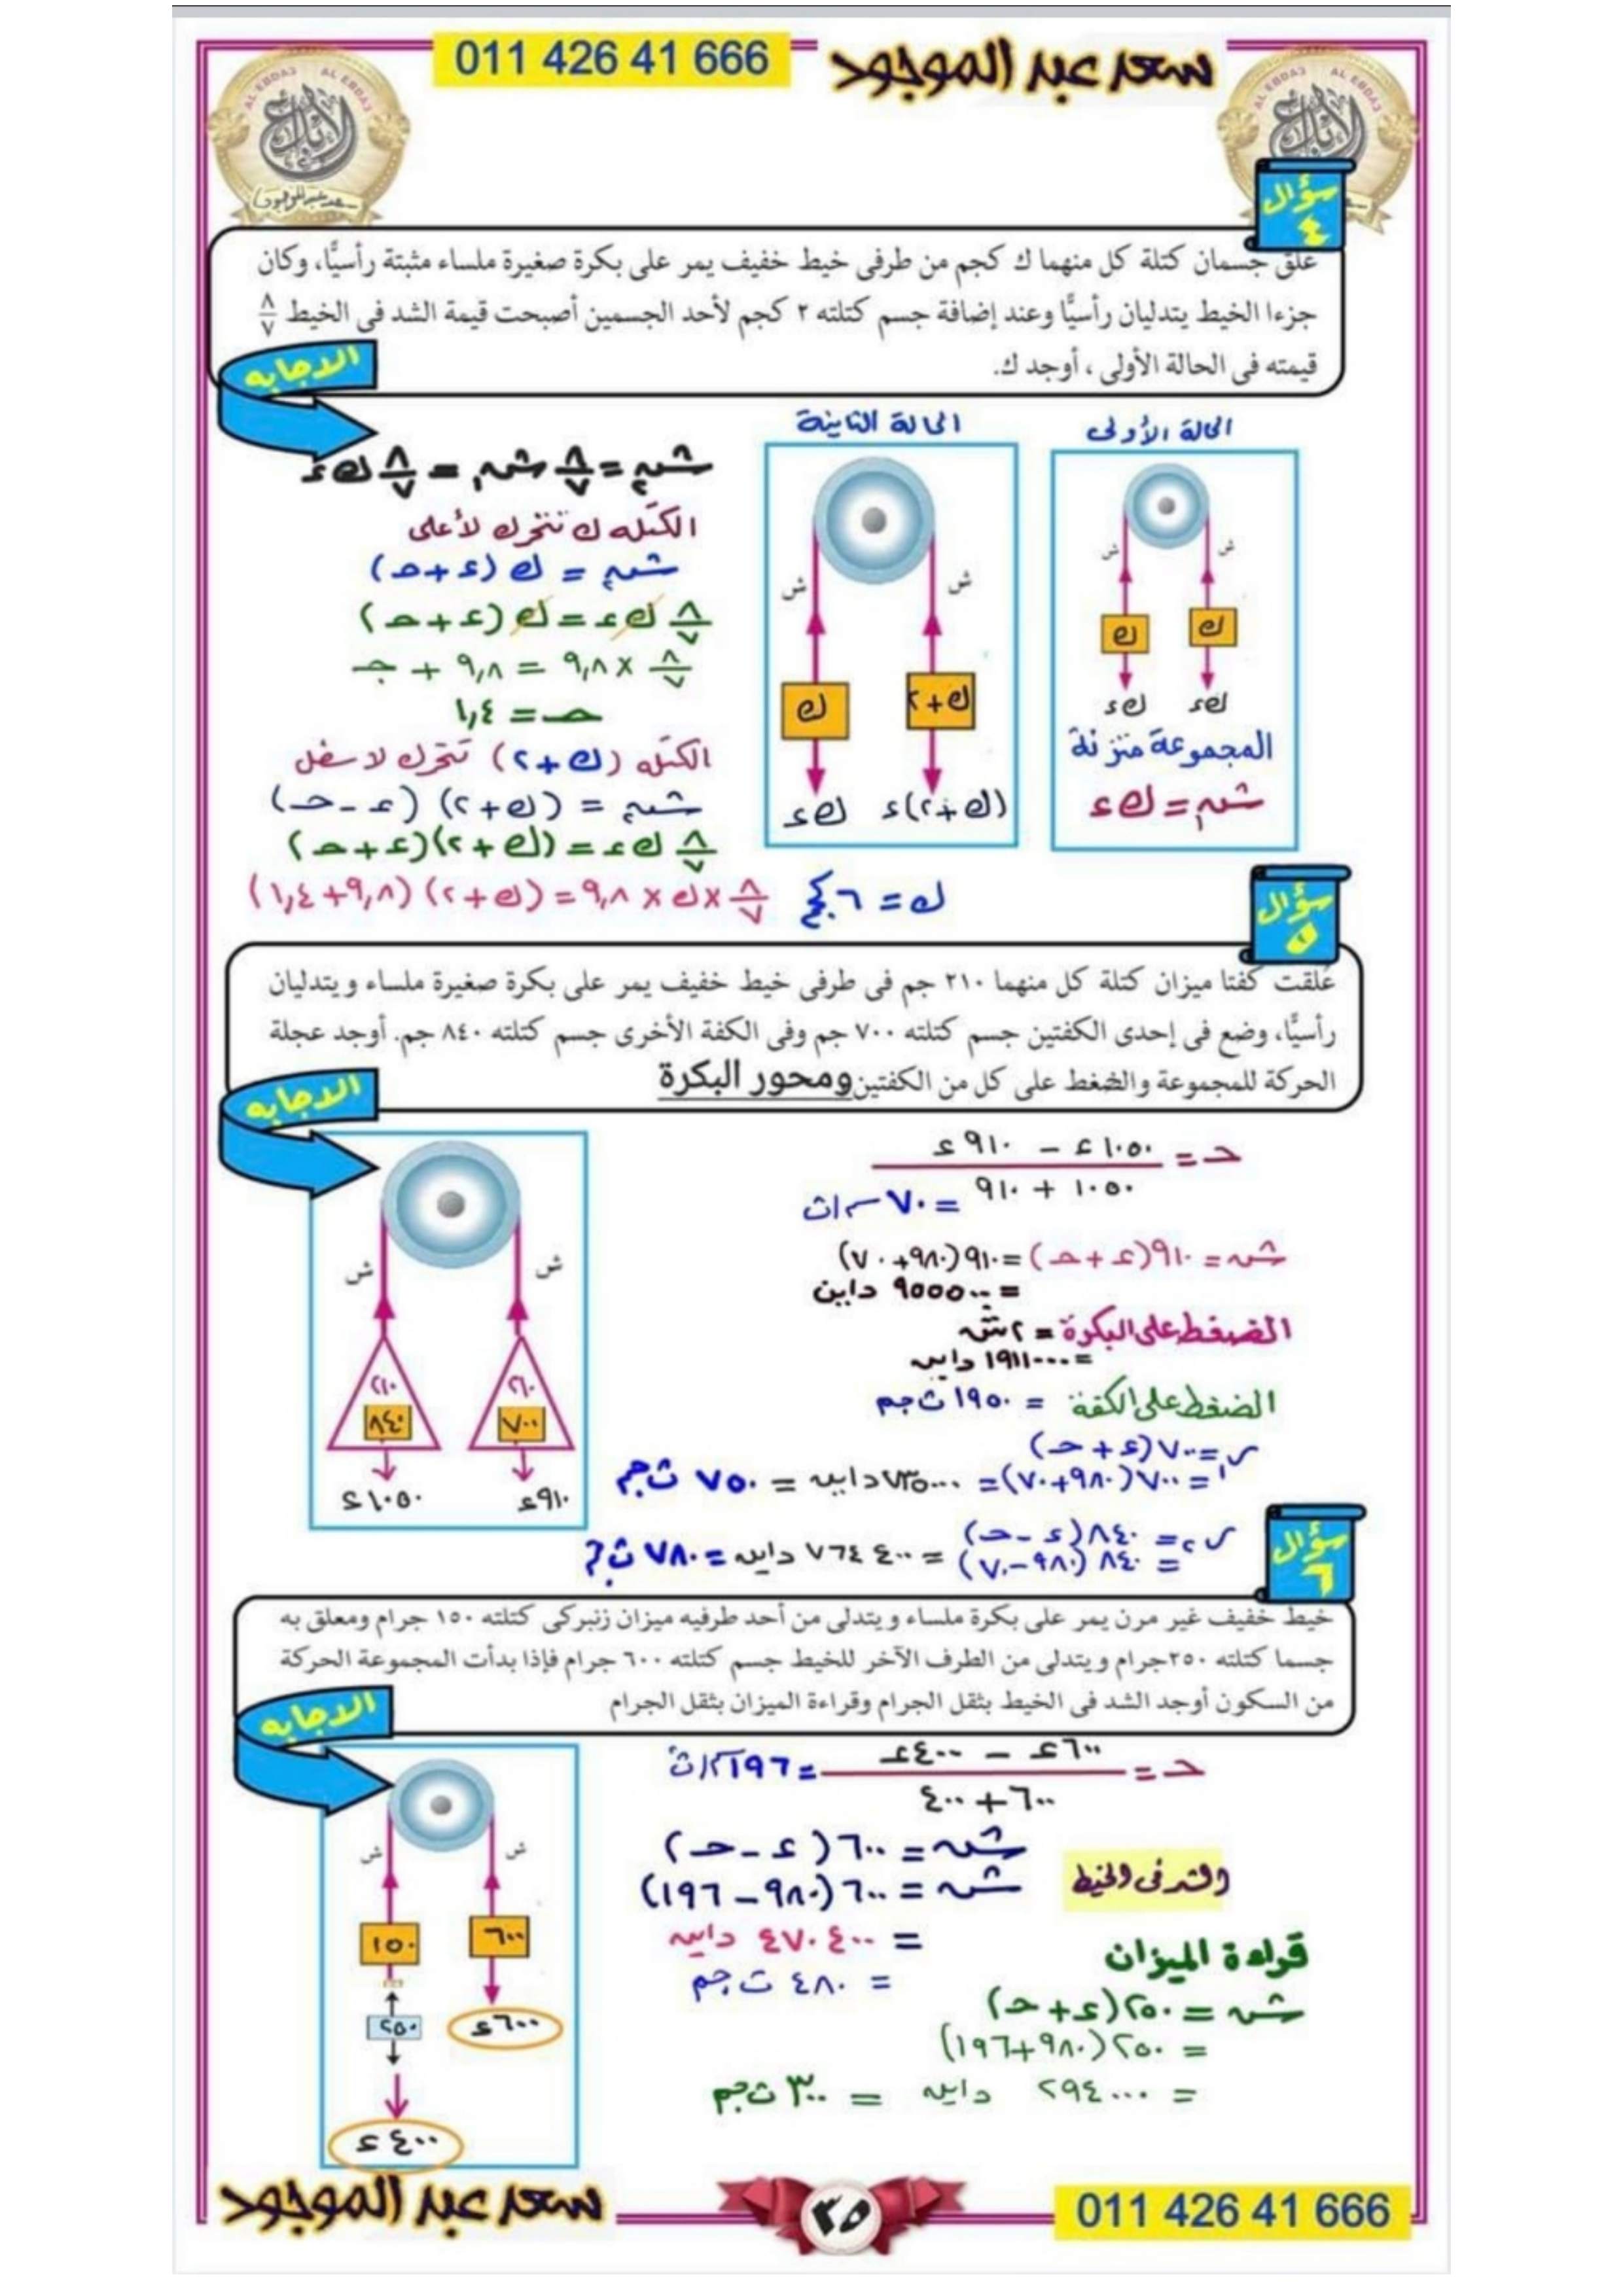 011 426 41 666
سعد عبد الموجود
AL EBDA3 AL EBDA3
الإبداع
سعد عبد الموجود
AL EBDA3 AL EBDA3
الإبداع
سؤال ٤
علق جسمان كتلة كل منهما ك كجم من طرفى خيط خفيف يمر على بكرة صغيرة ملساء مثبتة رأسيًّا، وكان
جزءا الخيط يتدليان رأسيًّا وعند إضافة جسم كتلته ٢ كجم لأحد الجسمين أصبحت قيمة الشد فى الخيط ٨/٧
قيمته فى الحالة الأولى ، أوجد ك.
الاجابه
الحالة الأولى
ش ش
ك ك
ك ء ك ء
المجموعة متزنة
ش١ = ك ء
الحالة الثانية
ش ش
ك ك+٢
ك ء (ك+٢)ء
ش٢ = ٨/٧ ش١ = ٨/٧ ك ء
الكتله ك تتحرك لأعلى
ش٢ = ك (ء + حـ)
٨/٧ ك ء = ك (ء + حـ)
٨/٧ × ٩,٨ = ٩,٨ + حـ
حـ = ١,٤
الكتله (ك+٢) تتحرك لاسفل
ش٢ = (ك+٢) (ء - حـ)
٨/٧ ك ء = (ك+٢)(ء + حـ)
٨/٧ × ك × ٩,٨ = (ك+٢) (٩,٨+١,٤)
ك = ٦ كجم
سؤال ٥
عُلقت كفتا ميزان كتلة كل منهما ٢١٠ جم فى طرفى خيط خفيف يمر على بكرة صغيرة ملساء ويتدليان
رأسيًّا، وضع فى إحدى الكفتين جسم كتلته ٧٠٠ جم وفى الكفة الأخرى جسم كتلته ٨٤٠ جم. أوجد عجلة
الحركة للمجموعة والضغط على كل من الكفتين ومحور البكرة
الاجابه
ش ش
٢١٠ ٢١٠
٨٤٠ ٧٠٠
١٠٥٠ء ٩١٠ء
حـ = (١٠٥٠ء - ٩١٠ء) / (١٠٥٠ + ٩١٠)
= ٧٠ سم/ث
ش = ٩١٠(ء + حـ) = ٩١٠(٩٨٠+٧٠)
= ٩٥٥٥٠٠ داين
الضغط على البكرة = ٢ش
= ١٩١١٠٠٠ داين
الضغط على الكفة = ١٩٥٠ ث جم
ر١ = ٧٠٠(ء + حـ)
= ٧٠٠(٩٨٠+٧٠) = ٧٣٥٠٠٠ داين = ٧٥٠ ث جم
ر٢ = ٨٤٠(ء - حـ)
= ٨٤٠(٩٨٠-٧٠) = ٧٦٤٤٠٠ داين = ٧٨٠ ث جم
سؤال ٦
خيط خفيف غير مرن يمر على بكرة ملساء ويتدلى من أحد طرفيه ميزان زنبركى كتلته ١٥٠ جرام ومعلق به
جسما كتلته ٢٥٠جرام ويتدلى من الطرف الآخر للخيط جسم كتلته ٦٠٠ جرام فإذا بدأت المجموعة الحركة
من السكون أوجد الشد فى الخيط بثقل الجرام وقراءة الميزان بثقل الجرام
الاجابه
ش ش
١٥٠ ٦٠٠
٢٥٠ ٦٠٠ء
٤٠٠ء
حـ = (٦٠٠ء - ٤٠٠ء) / (٦٠٠ + ٤٠٠) = ١٩٦ سم/ث
الشد فى الخيط
ش = ٦٠٠(ء - حـ)
ش = ٦٠٠(٩٨٠ - ١٩٦)
= ٤٧٠٤٠٠ داين
= ٤٨٠ ث جم
قراءة الميزان
ش = ٢٥٠(ء + حـ)
= ٢٥٠(٩٨٠+١٩٦)
= ٢٩٤٠٠٠ داين = ٣٠٠ ث جم
سعد عبد الموجود
٣٥
011 426 41 666